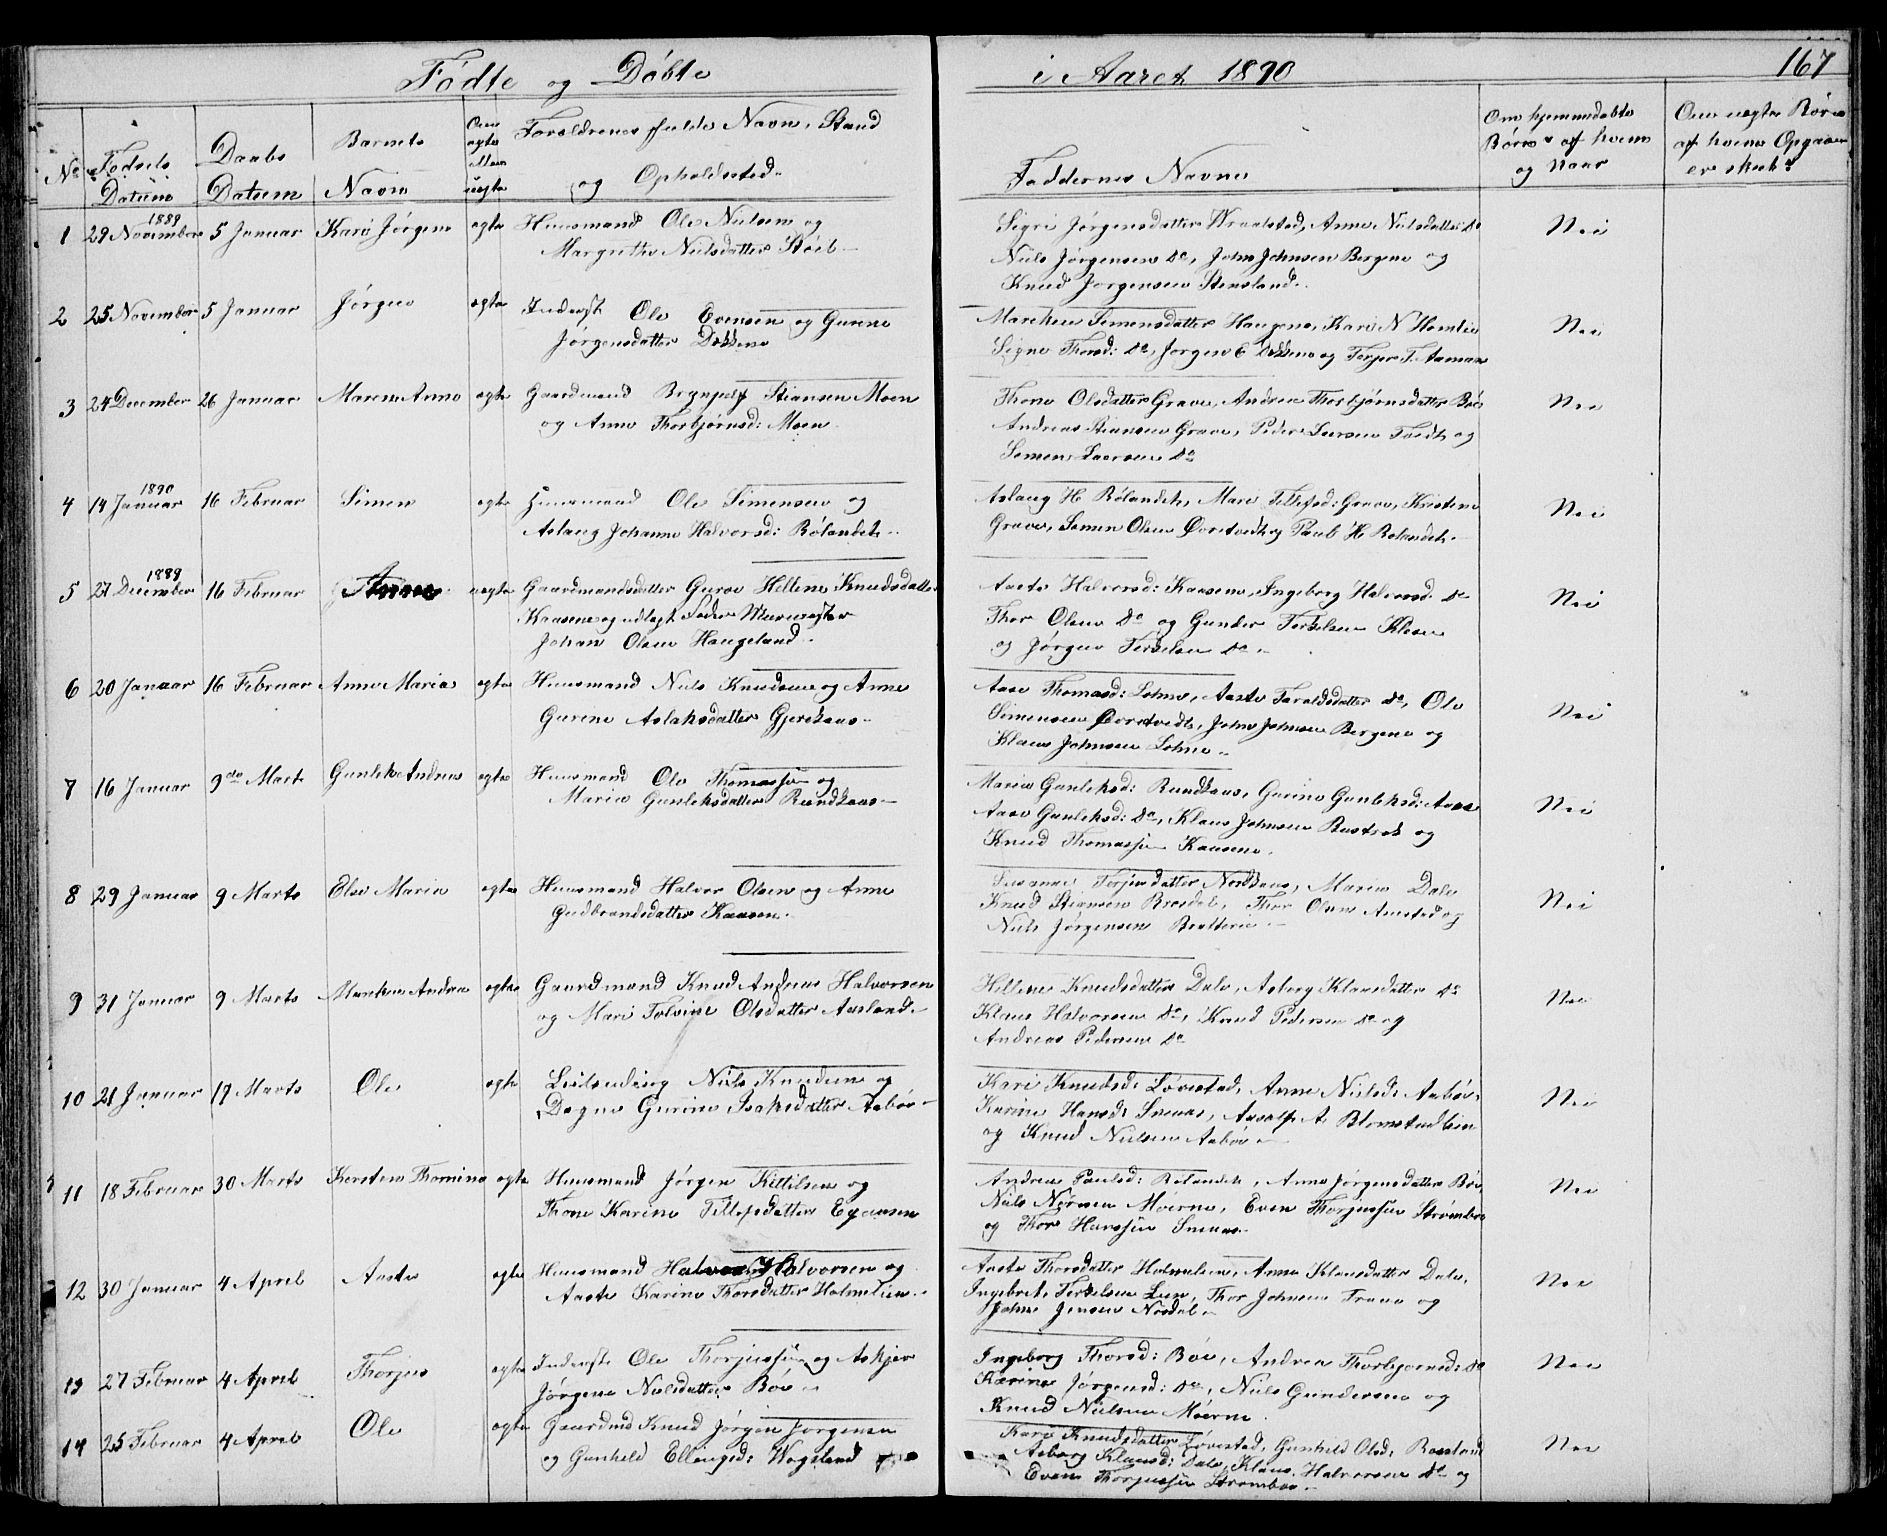 Fødte og Døbte i Aaret 1890 167
No Fødsels Datum Daabs Datum Barnets Navn Om ægte eller uægte Forældrenes fulde Navn, Stand og Opholdssted. Faddernes Navne Om hjemmedøbte Børn af hvem og naar Om uægte Børn af hvem Opgaven er skeet
1 29 November 1889 5 Januar Karo Jørgene ægte Huusmand Ole Nielsen og
Margrethe Nielsdatter Støeb
Sigri Jørgensdatter Wraalstad, Anne Nielsdatter Do
Niels Jørgensen Do, John Johnsen Bergene og
Knud Jørgensen Stensland.
Nei
2 25 November 5 Januar Jørgen ægte Inderst Ole Evensen og Gurine
Jørgensdatter Dokkene
Marchen Simensdatter Haugene, Kari N Homlie
Signe Thorsd: Do, Jørgen E Dokkene og Terjer T. Aamane
Nei
3 24 December 26 Januar Maren Anne ægte Gaardmand Brynjulf Stiansen Moen
og Anne Thorbjørnsd: Moen
Thone Olsdatter Grave, Andrea Thorbjørnsdatter Bøe
Andreas Stiansen Grave, Peder Laersen Tvedt og
Simen Laersen Do
Nei
4 14 Januar 1890 16 Februar Simen ægte Huusmand Ole Simensen og
Aslaug Johanne Halvorsd: Rølandet
Aslaug H Rølandet, Mari Tellefsd: Grave, Kristene
Grave, Simen Olsen Øvretvedt og Paul H Rølandet.
Nei
5 27 December 1889 16 Februar Anne uægte Gaardmandsdatter Guroe Hellene Knudsdatter
Kaasene og udlagt Fader Murmester
Johan Olsen Haugeland.
Aaste Halvorsd: Kaasene, Ingeborg Halvorsd Do
Thor Olsen Do og Gunder Terkelsen Klesen
og Jørgen Terkelsen Do
Nei
6 20 Januar 16 Februar Anne Marie ægte Huusmand Niels Knudsen og Anne
Gurine Aslaksdatter Gjerskaas
Aase Thomasd: Lohne, Aaste Taraldsdatter Do, Ole
Simensen Øvretvedt, John Johnsen Bergene og
Klaus Johnsen Lohne
Nei
7 16 Januar 9de Mart Gunlek Andreas ægte Huusmand Ole Thomassen og
Marie Gunleksdatter Rundkaas
Marie Gunleksd: Rundkaas, Gurine Gunleksd: Aase
Aase Gunleksd: Do, Klaus Johnsen Bustrak og
Knud Thomassen Kaasene.
Nei
8 29 Januar 9 Marts Else Marie ægte Huusmand Halvor Olsen og Anne
Gudbrandsdatter Kaasen.
Susanne Terjesdatter Nordkaas, Marie Dale
Knud Stiansen Bredal, Thor Olsen Amsted og
Niels Jørgensen Bratterie
Nei
9 31 Januar 9 Marts Marken Andrea ægte Gaardmand Knud Andreas Halvorsen
og Mari Tolvine Olsdatter Aasland
Hellene Knudsdatter Dale, Asborg Klausdatter Do
Klaus Halvorsen Do, Knud Pedersen Do og
Andreas Pedersen Do
Nei
10 21 Januar 17 Marts Ole ægte Leilænding Niels Knudsen og
Dagne Gurine Isaksdatter Aabøe
Kari Knudsd: Løvestad, Anne Nielsd: Aabøe
Karine Hansd: Sneaas, Aasolf A. Blomstadlien
og Knud Nielsen Aabøe
Nei
11 18 Februar 30 Marts Kirsten Thomine ægte Huusmand Jørgen Kittilsen og
Thone Karine Tellefsdatter Egaasen
Andrea Paulsd: Rølandet, Anne Jørgensdatter Bøe
Niels Nersen Moerne, Even Thorjussen Strømboe
og Thor Hansen Sneaas
Nei
12 30 Januar 4 April Aaste ægte Huusmand Halvor Halvorsen og
Aaste Karine Thorsdatter Holmelien
Aaste Thorsdatter Holmelien, Anne Klausdatter Dale,
Ingebret Terkelsen Lien, Thor Johnsen Trane og
John Jensen Nordal
Nei
13 27 Februar 4 April Thorjus ægte Inderst Ole Thorjussen og Askjer
Jørgene Nielsdatter Bøe
Ingeborg Thorsd: Bøe, Andrea Thorbjornsd: Do
Karine Jørgensd: Do, Niels Gundersen og
Knud Nielsen Moerne.
Nei
14 25 Februar 4 April Ole ægte Gaardmd Knud Jørgen Jørgensen
og Gunhild Ellingsd: Wogsland
Kari Knudsdatter Løvestad, Gunhild Olsd: Rosland
Asborg Klausd: Dale, Klaus Halvorsen Do og
Even Thorjussen Strømboe.
Nei